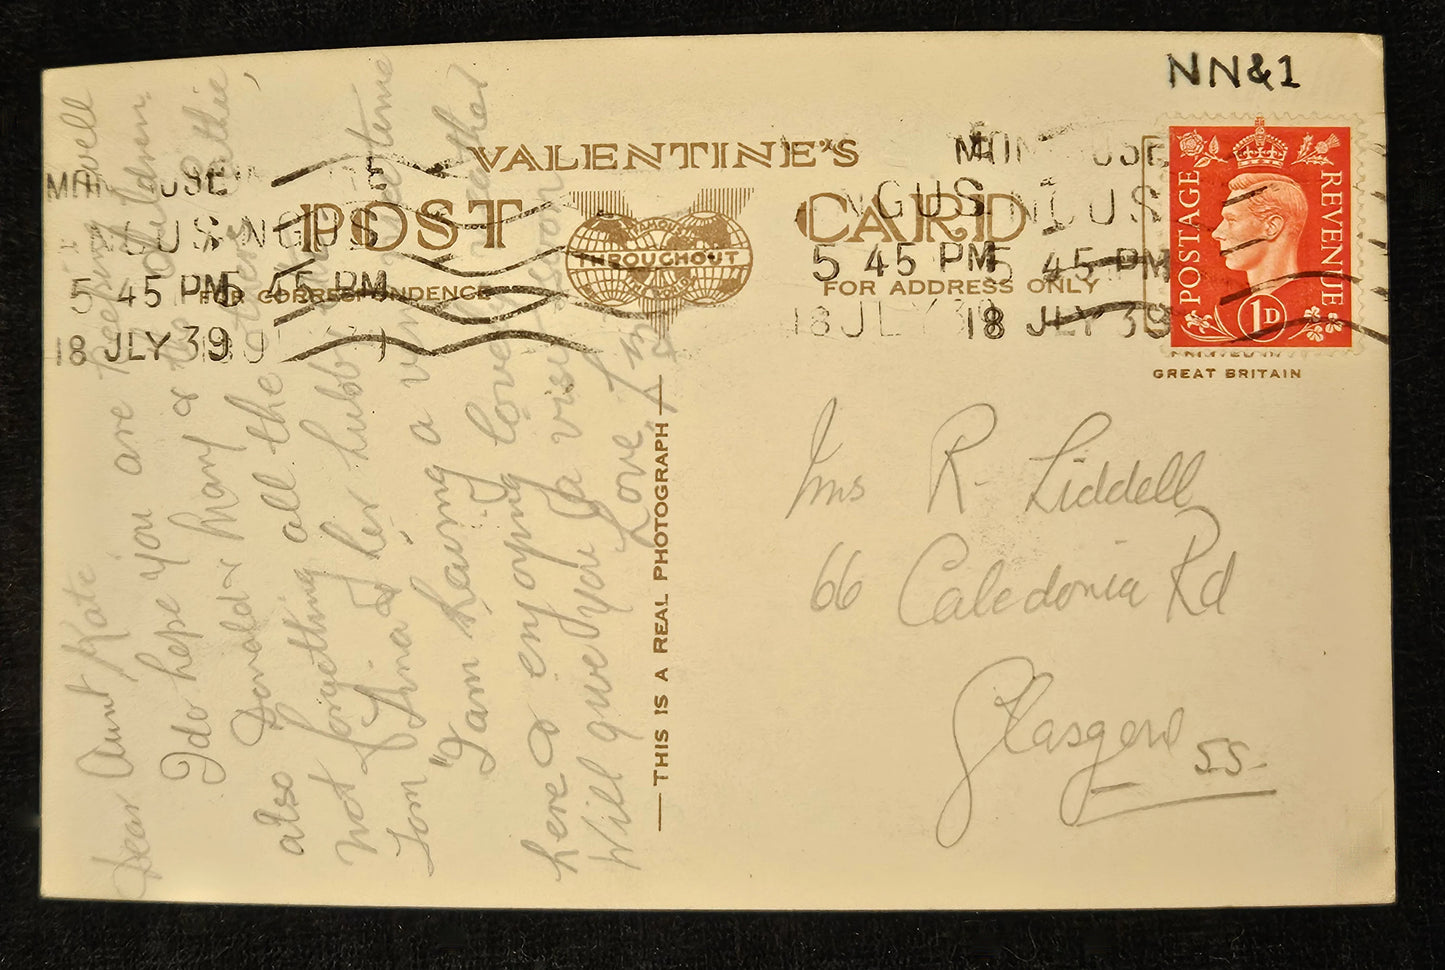 NN&1
VALENTINE'S
POST CARD
FAMOUS
THROUGHOUT
THE WORLD
FOR CORRESPONDENCE
FOR ADDRESS ONLY
ANGUS
5 45 PM
18 JLY 39
ANGUS
5 45 PM
18 JLY 39
POSTAGE
REVENUE
1D
PRINTED IN
GREAT BRITAIN
THIS IS A REAL PHOTOGRAPH
Dear Aunt Kate
I do hope you are keeping well
also Donald & Mary & the children.
not forgetting all the
Tom & her hubby
"I am having a
here & enjoying lovely weather
Will give you a visit soon
Love
Mrs R. Liddell
66 Caledonia Rd
Glasgow
S.S.